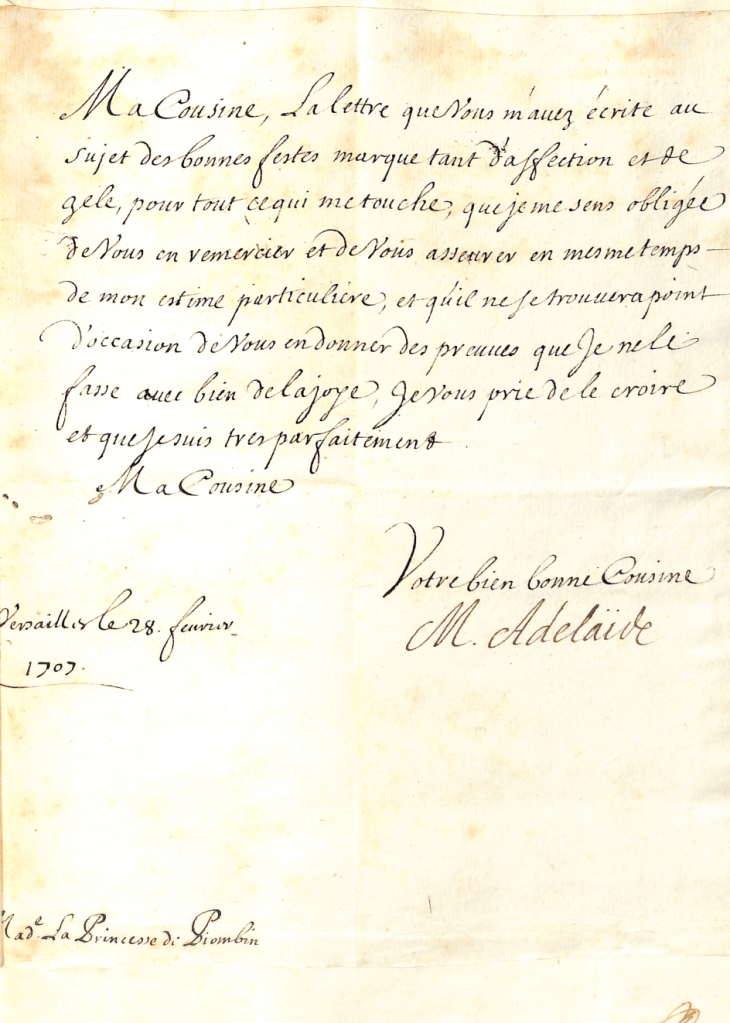 Ma Cousine, La lettre que Vous m'avez écrite au
sujet des bonnes festes marque tant d'affection et de
zele, pour tout ce qui me touche, que je me sens obligée
de Vous en remercier et de Vous asseurer en mesme temps
de mon estime particuliere, et qu'il ne se trouvera point
d'occasion de Vous en donner des preuves que Je ne le
fasse avec bien de la joye, Je Vous prie de le croire
et que Je suis tres parfaitement
Ma Cousine
Votre bien bonne Cousine
M. Adelaïde
Versailles le 28. fevrier
1707.
Made. La Princesse di Piombin